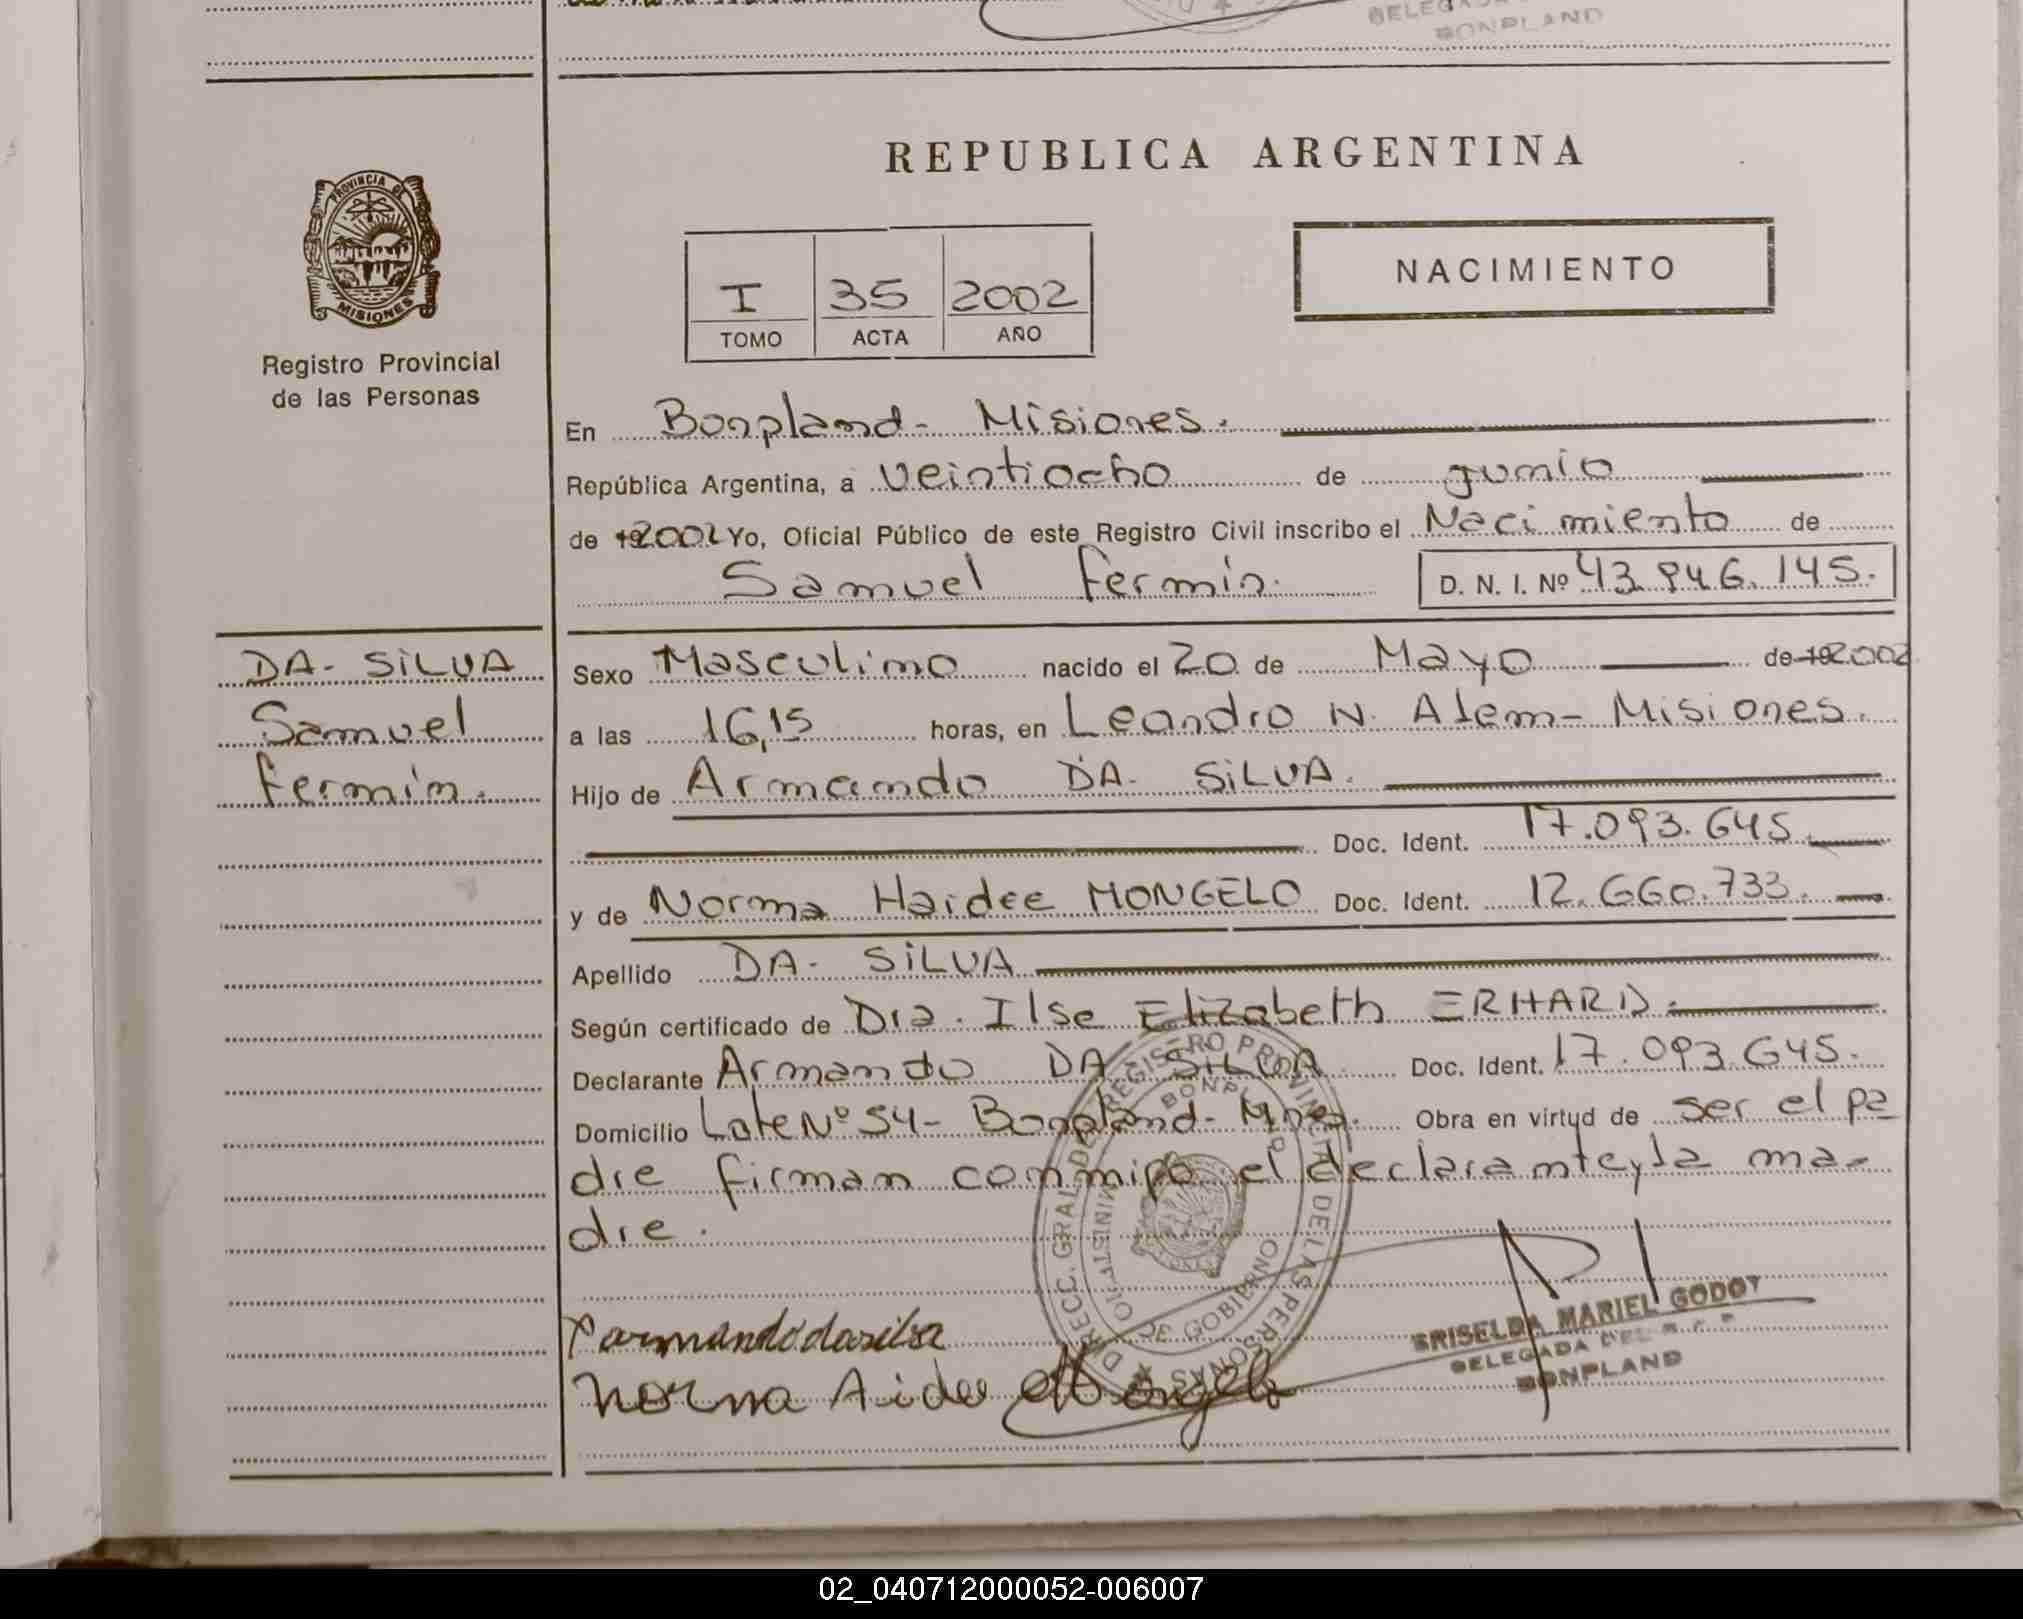 BONPLAND
REPUBLICA ARGENTINA
PROVINCIA DE
MISIONES
Registro Provincial
de las Personas
NACIMIENTO
I 35 2002
TOMO ACTA AÑO
En Bonpland - Misiones.
República Argentina, a veintiocho de junio
de 192002 Yo, Oficial Público de este Registro Civil inscribo el Nacimiento de
Samuel Fermín. D. N. I. Nº 43.846.145.
DA - SILVA
Samuel
Fermín.
Sexo Masculino nacido el 20 de Mayo de 192002
a las 16,15 horas, en Leandro N. Alem - Misiones.
Hijo de Armando DA - SILVA.
Doc. Ident. 17.093.645.
y de Norma Haidee MONGELO Doc. Ident. 12.660.733.
Apellido DA - SILVA
Según certificado de Dra. Ilse Elizabeth ERHARD.
Declarante Armando DA SILVA Doc. Ident. 17.093.645.
Domicilio Lote Nº 54 - Bonpland - Mnes. Obra en virtud de ser el pa
dre firman conmigo el declarante y la ma-
dre.
DIRECC. GRAL. DEL REGISTRO PROVINCIAL DE LAS PERSONAS
BONPLAND
MINISTERIO DE GOBIERNO
armando da silva
Norma Aidee Mongelo
GRISELDA MARIEL GODOY
DELEGADA DEL R. P. P.
BONPLAND
02_040712000052-006007